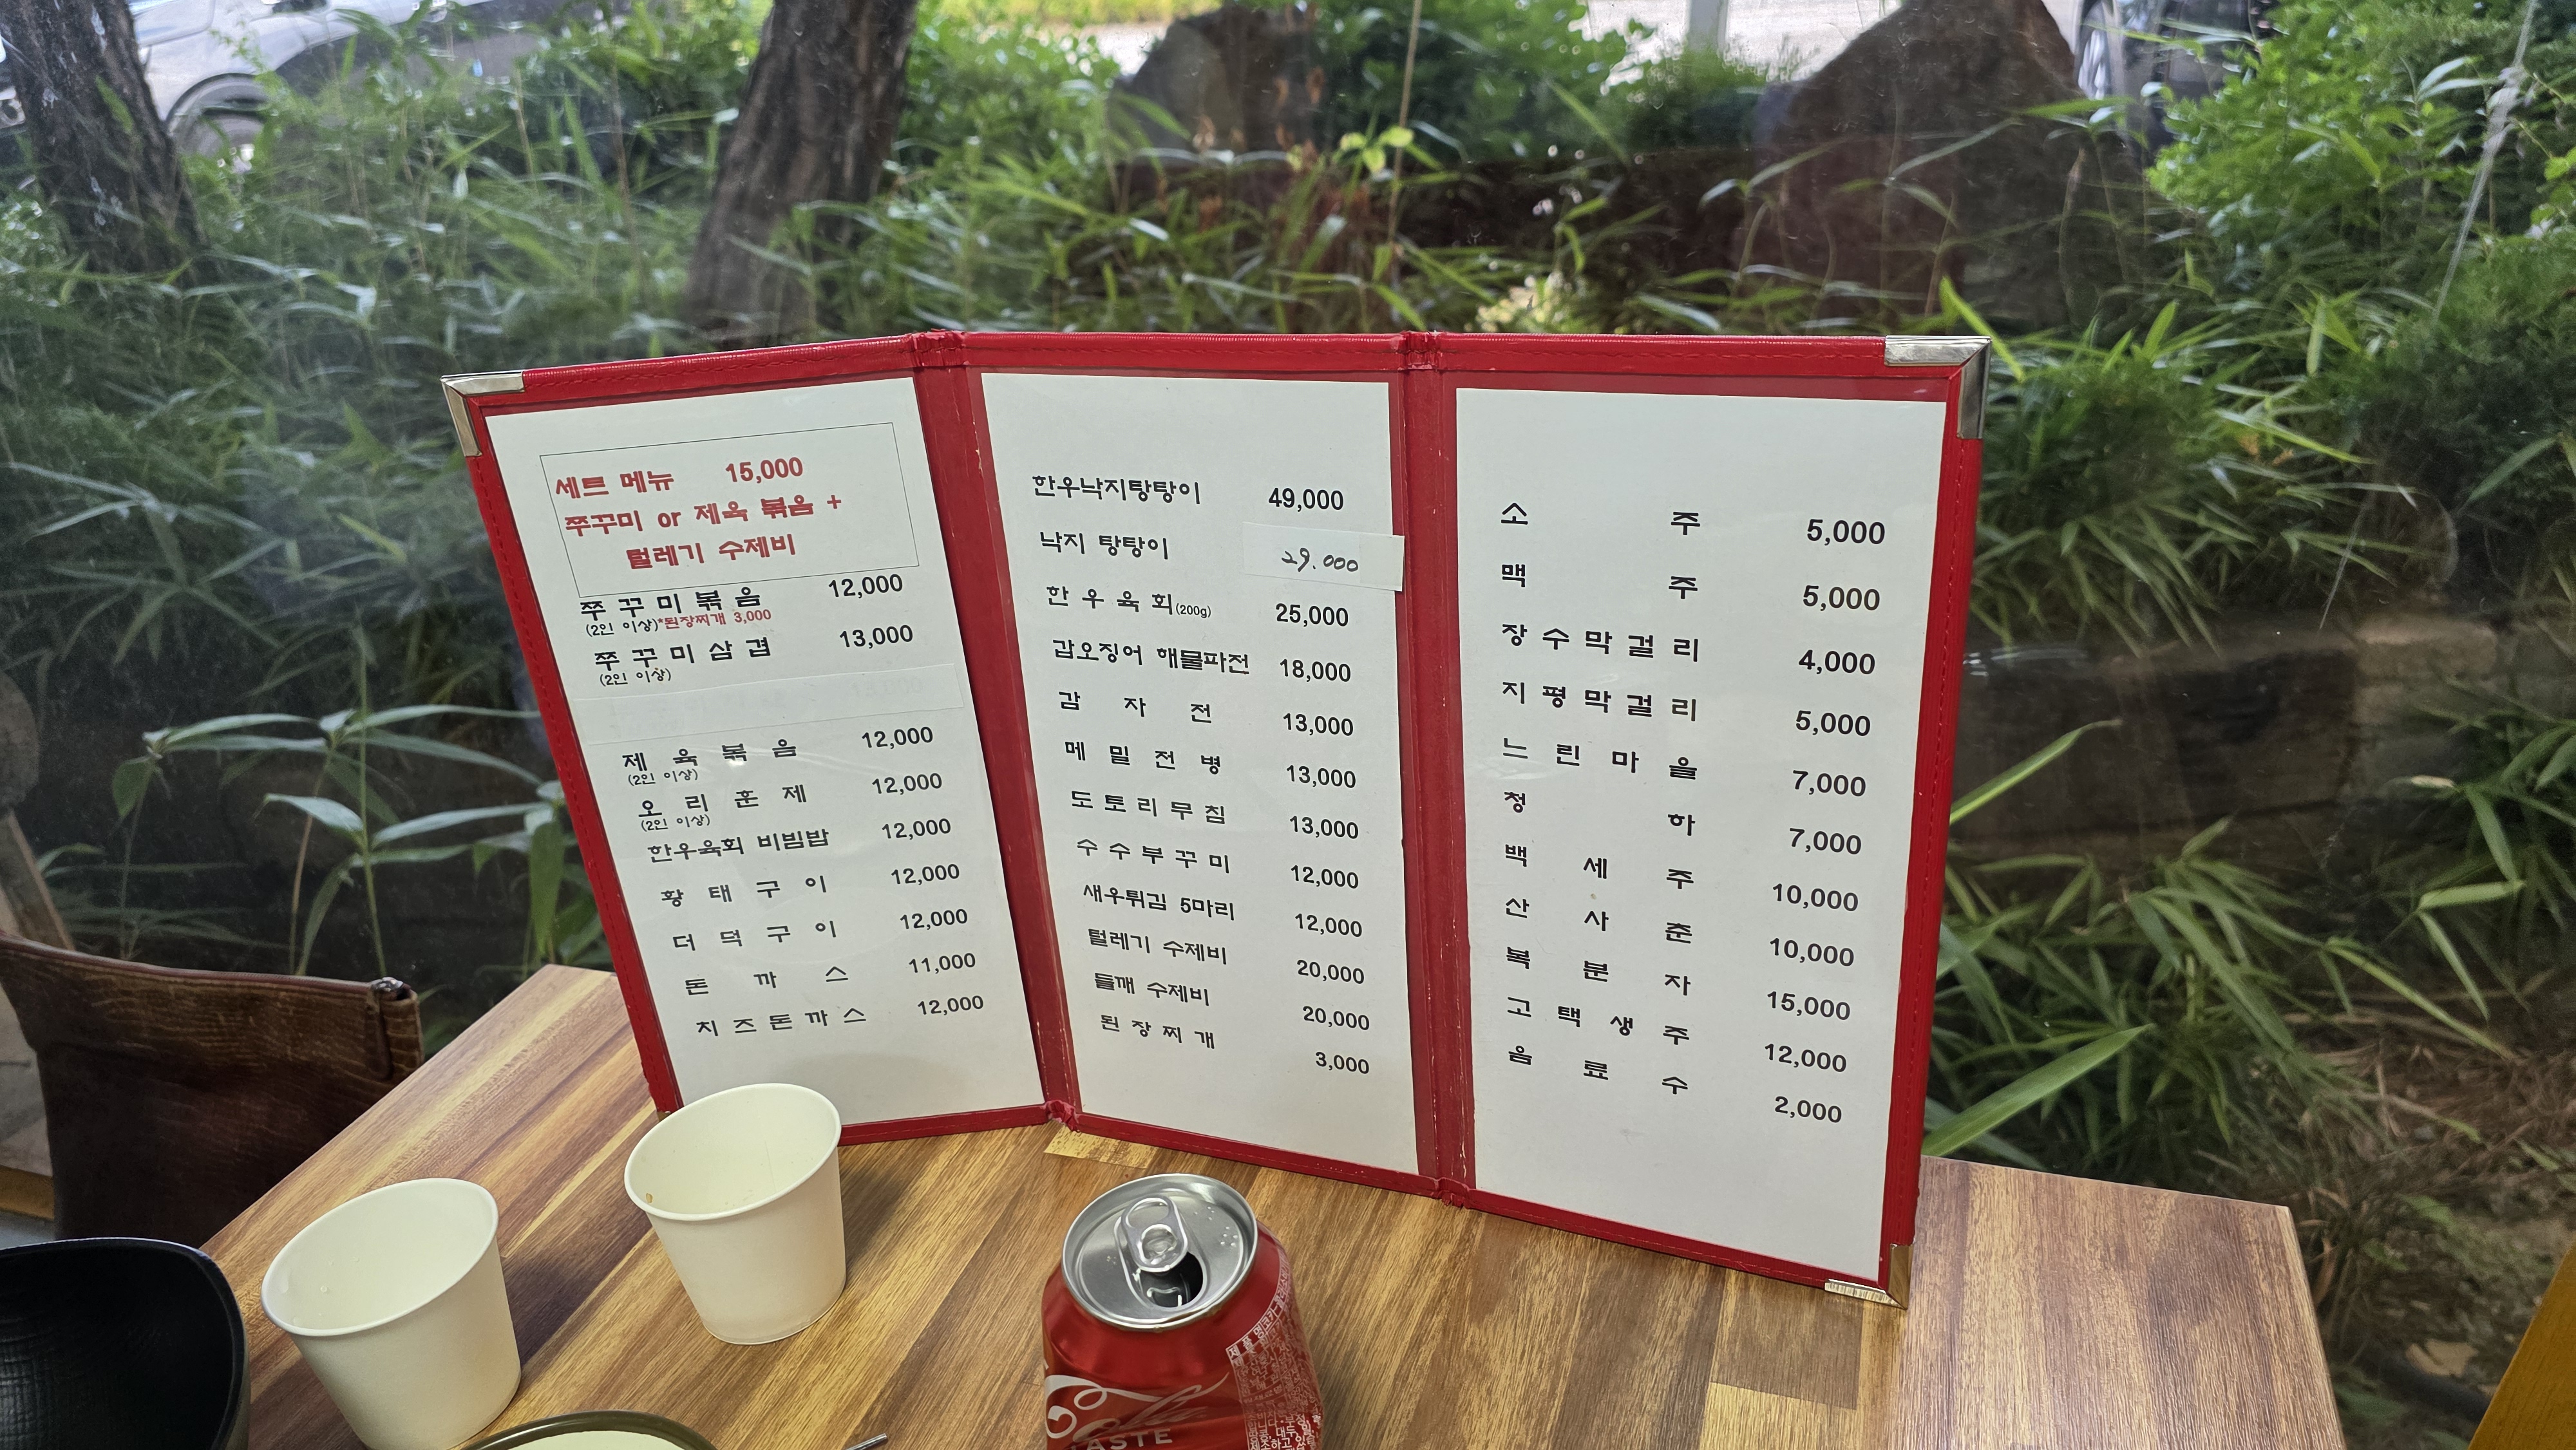 세트 메뉴 15,000
쭈꾸미 or 제육 볶음 +
털레기 수제비
쭈꾸미볶음 12,000
(2인 이상)*된장찌개 3,000
쭈꾸미삼겹 13,000
(2인 이상)
제육볶음 12,000
(2인 이상)
오리훈제 12,000
(2인 이상)
한우육회 비빔밥 12,000
황태구이 12,000
더덕구이 12,000
돈까스 11,000
치즈돈까스 12,000
한우낙지탕탕이 49,000
낙지 탕탕이 29.000
한우육회(200g) 25,000
갑오징어 해물파전 18,000
감자전 13,000
메밀전병 13,000
도토리무침 13,000
수수부꾸미 12,000
새우튀김 5마리 12,000
털레기 수제비 20,000
들깨 수제비 20,000
된장찌개 3,000
소주 5,000
맥주 5,000
장수막걸리 4,000
지평막걸리 5,000
느린마을 7,000
청하 7,000
백세주 10,000
산사춘 10,000
복분자 15,000
고택생주 12,000
음료수 2,000
TASTE